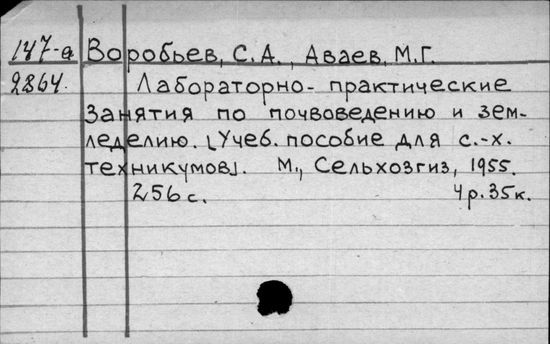 147-а Воробьев, С.А., Аваев, М.Г.
2864. Лабораторно-практические
занятия по почвоведению и зем-
леделию. [Учеб. пособие для с.-х.
техникумов]. М., Сельхозгиз, 1955.
256 с. 4 р. 35 к.